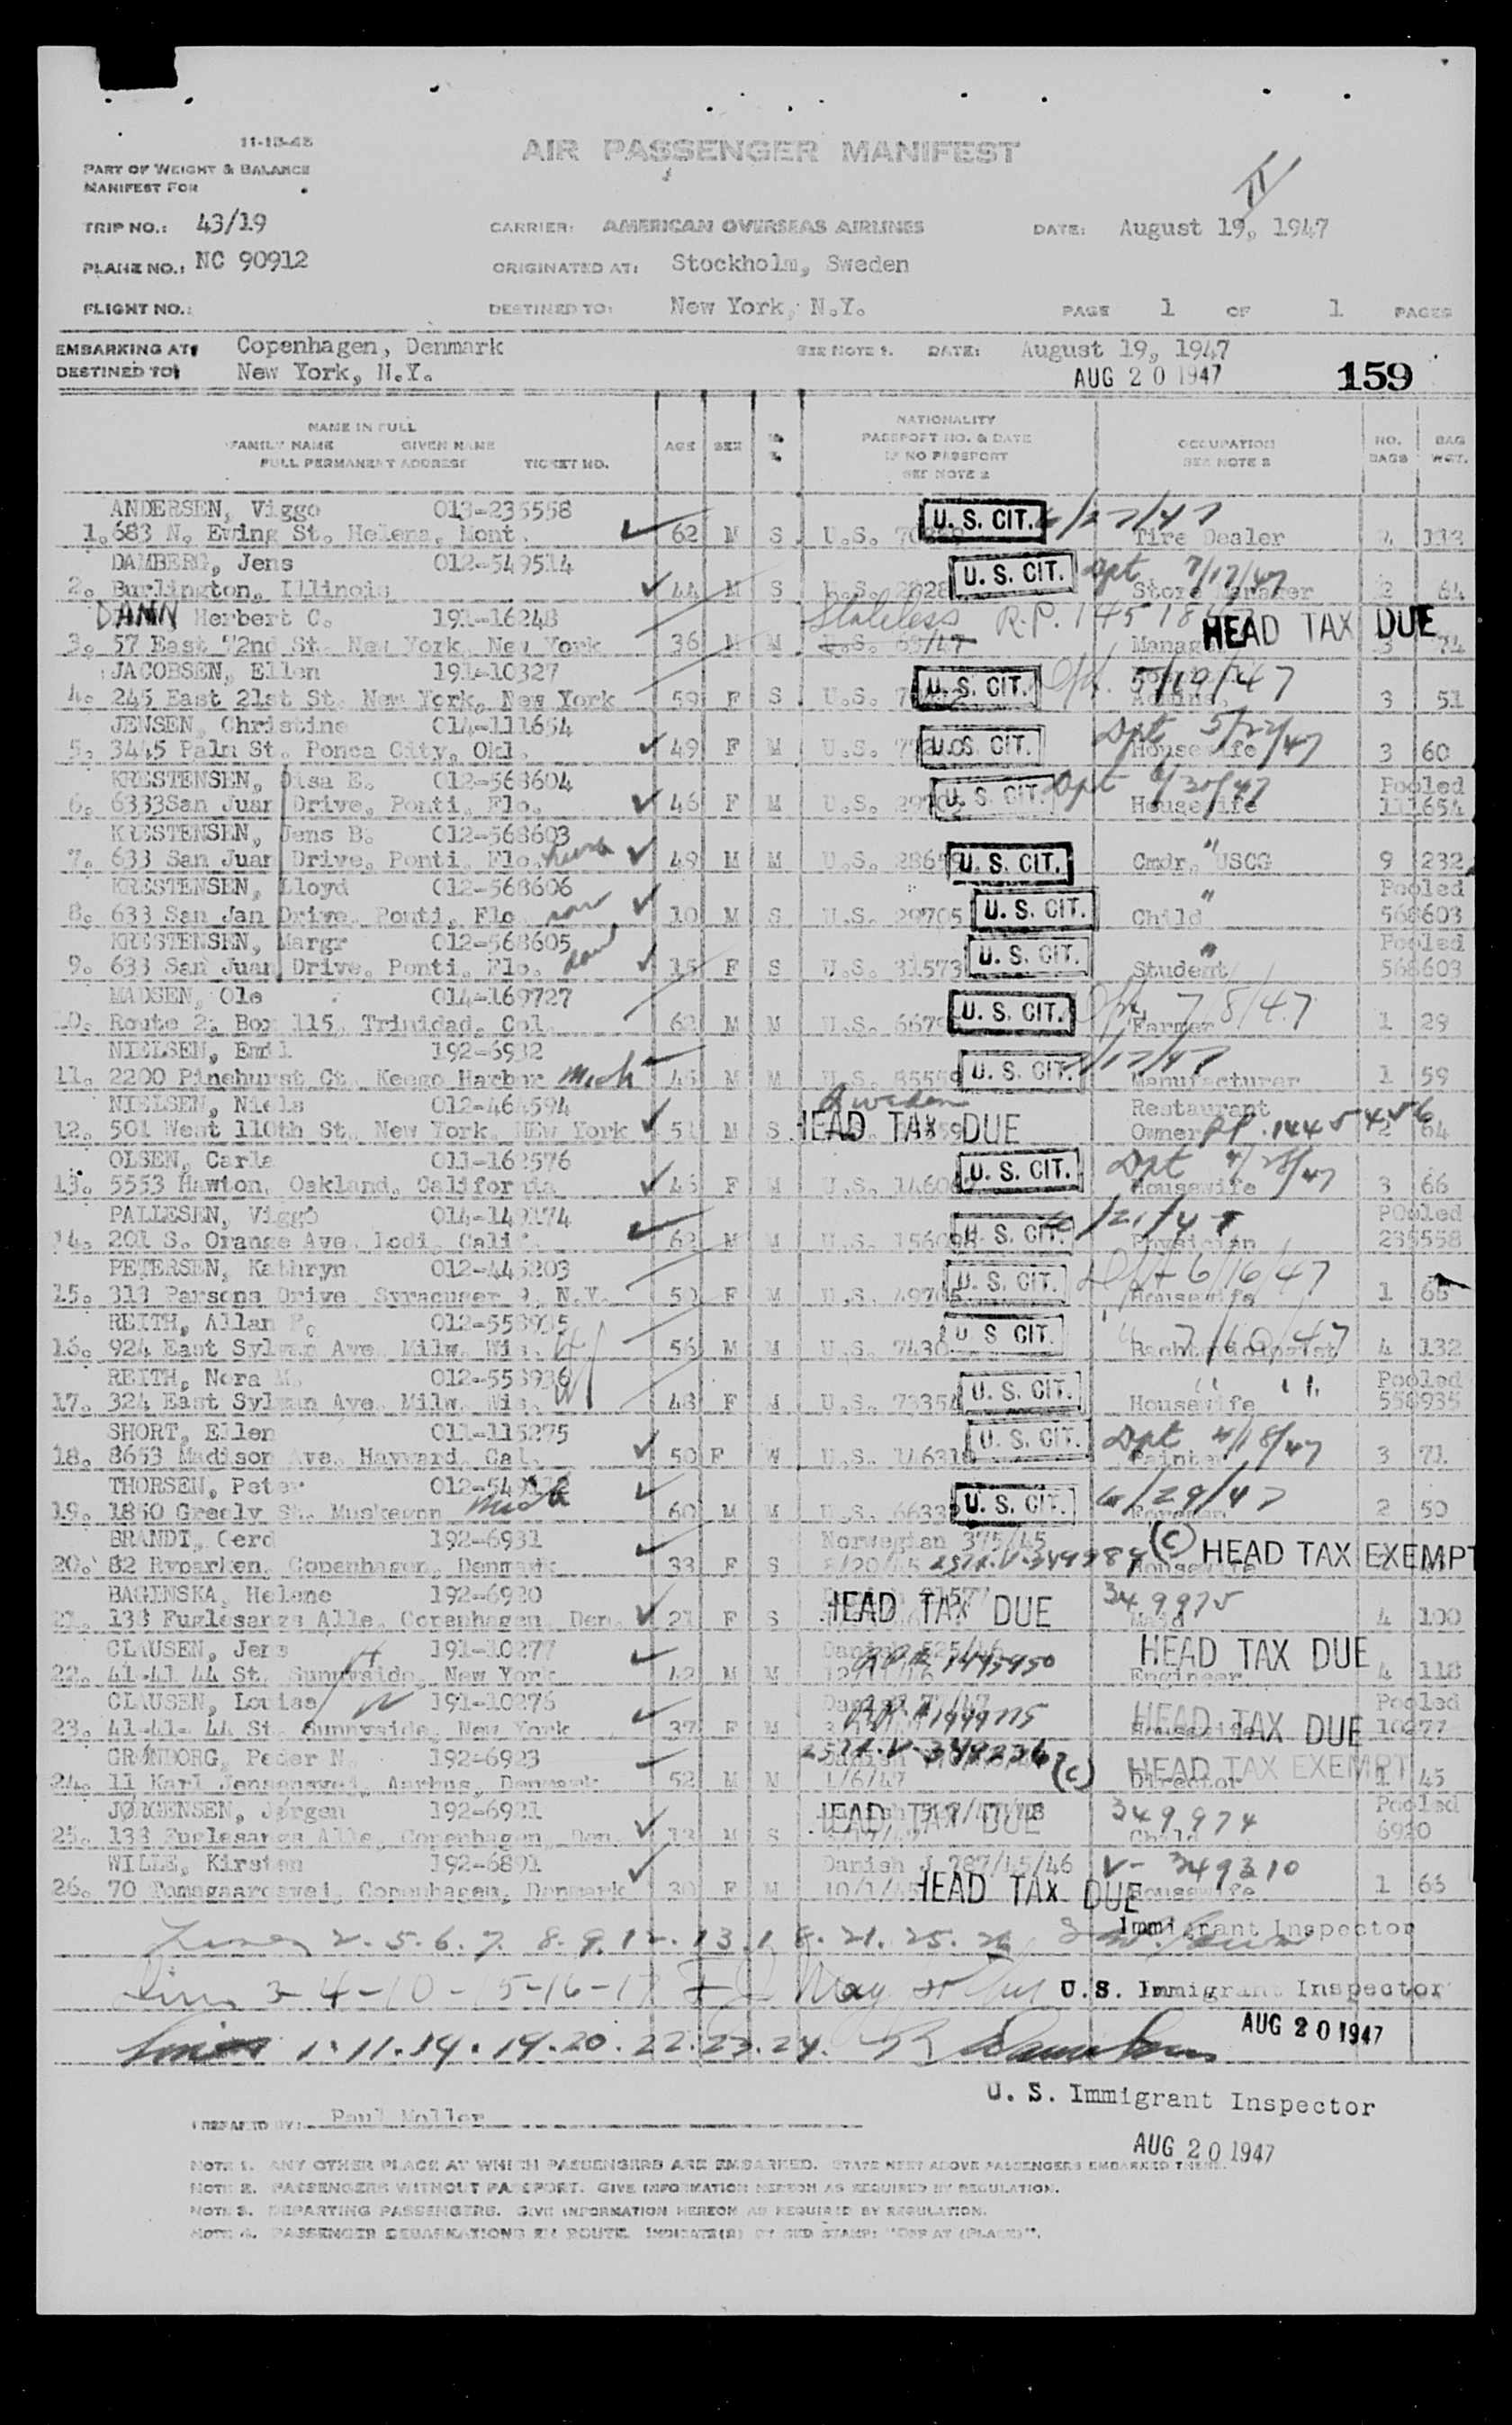 11-13-46
AIR PASSENGER MANIFEST
PART OF WEIGHT & BALANCE
MANIFEST FOR
TRIP NO.: 43/19 CARRIER: AMERICAN OVERSEAS AIRLINES DATE: August 19, 1947
PLANE NO.: NC 90912 ORIGINATED AT: Stockholm, Sweden
FLIGHT NO.: DESTINED TO: New York, N.Y. PAGE 1 OF 1 PAGES
EMBARKING AT: Copenhagen, Denmark SEE NOTE 1. DATE: August 19, 1947
DESTINED TO: New York, N.Y. AUG 20 1947 159
NAME IN FULL
FAMILY NAME GIVEN NAME
FULL PERMANENT ADDRESS TICKET NO. AGE SEX
NATIONALITY
PASSPORT NO. & DATE
IF NO PASSPORT
SEE NOTE 2
OCCUPATION
SEE NOTE 3
NO. BAGS BAG WGT.
ANDERSEN, Viggo 013-235558 U. S. CIT. 6/27/47
1. 683 N. Ewing St. Helena, Mont. 62 M S U.S. Tire Dealer 132
DAMBERG, Jens 012-549514 U. S. CIT. Dpt 7/17/47
2. Burlington, Illinois 44 M S U.S. Store Manager 2 64
DANN Herbert C. 191-16248 Stateless R.P. HEAD TAX DUE
3. 57 East 72nd St. New York, New York 36 M M U.S. 69/47 3 74
JACOBSEN, Ellen 191-10327 U. S. CIT. 5/19/47
4. 245 East 21st St. New York, New York 59 F S U.S. 3 51
JENSEN, Christine 014-111654 Dpt 5/22/47
5. 3445 Palm St. Ponca City, Okl. 49 F M U.S. U.S. CIT. Housewife 3 60
KRESTENSEN, Disa E. 012-568604 U. S. CIT. Dpt 6/30/47 Pooled
6. 6333San Juan Drive, Ponti, Flo. 46 F M U.S. Housewife 111654
KRESTENSEN, Jens B. 012-568603 "
7. 633 San Juan Drive, Ponti, Flo. 49 M M U.S. U. S. CIT. Cmdr, USCG 9 232
KRESTENSEN, Lloyd 012-568606 " Pooled
8. 633 San Jan Drive, Ponti, Flo. son 10 M S U.S. 29705 U. S. CIT. Child 568603
KRESTENSEN, Margr 012-568605 " Pooled
9. 633 San Juan Drive, Ponti, Flo. dau 15 F S U.S. 31573 U. S. CIT. Student 568603
MADSEN, Ole 014-169727 U. S. CIT. Dpt 7/8/47
10. Route 2, Box 115, Trinidad, Col. 62 M M U.S. Farmer 1 29
NIELSEN, Emil 192-6932 U. S. CIT.
11. 2200 Pinehurst Ct. Keego Harbor Mich 45 M M U.S. Manufacturer 1 59
NIELSEN, Niels 012-464594 Sweden Restaurant
12. 501 West 110th St. New York, NEw York 51 M S HEAD TAX DUE Owner RP. 1445456 2 64
OLSEN, Carla 011-162576 U. S. CIT. Dpt 4/28/47
13. 5553 Hawton, Oakland, California 45 F M U.S. Housewife 3 66
PALLESEN, Viggo 014-149174 U. S. CIT. POoled
14. 201 S. Orange Ave. Lodi, Calif. 62 M M U.S. Physician 235558
PETERSEN, Kathryn 012-445203 U. S. CIT. Dpt 6/16/47
15. 313 Parsons Drive Syracuser 9, N.Y. 50 F M U.S. Housewife 1 65
REITH, Allan P. 012-558935 U S CIT.
16. 924 East Sylvan Ave. Milw. Wis. H 56 M M U.S. 7430 4 132
REITH, Nora M. 012-558936 U. S. CIT. " " Pooled
17. 324 East Sylvan Ave. Milw. Wis. W 48 F M U.S. 73354 Housewife 558935
SHORT, Ellen 011-115275 U. S. CIT. Dpt 4/18/47
18. 8653 Madison Ave. Hayward, Cal. 50 F W U.S. 3 71
THORSEN, Peter Mich 6/29/47
19. 1850 Greely St. Muskegon 60 M M U.S. U. S. CIT. 2 50
BRANDT, Gerd 192-6931 Norwegian 375/45 (C) HEAD TAX EXEMPT
20. 82 Ryparken, Copenhagen, Denmark 33 F S Housewife
BAGINSKA, Helene 192-6920 HEAD TAX DUE 349975
21. 133 Fuglesangs Alle, Copenhagen, Den. 21 F S Maid 4 100
CLAUSEN, Jens H 191-10277 R.P.# 1495950 HEAD TAX DUE
22. 41-41 44 St. Sunnyside, New York 42 M M Engineer 4 118
CLAUSEN, Louise W 191-10276 HEAD TAX DUE Pooled
23. 41-41- 44 St. Sunnyside, New York 37 F M Housewife 10277
GRØNBORG, Peder N. 192-6923 (C) HEAD TAX EXEMPT
24. 11 Karl Jensensvej, Aarhus, Denmark 52 M M 1/6/47 Director 1 45
JØRGENSEN, Jørgen 192-6921 HEAD TAX DUE 349974 Pooled
25. 133 Fuglesangs Alle, Copenhagen, Den. 13 M S Child 6920
WILLE, Kirsten 192-6801 Danish J 787/45/46 V- 349310
26. 70 Tomsgaardsvej, Copenhagen, Denmark 30 F M HEAD TAX DUE Housewife 1 66
Lines 2. 5. 6. 7. 8. 9. 12. 13. 18. 21. 25. 26 Immigrant Inspector
Lines 3-4-10-15-16-17 U.S. Immigrant Inspector
AUG 20 1947
Lines 1. 11. 14. 19. 20. 22. 23. 24.
U. S. Immigrant Inspector
PREPARED BY: Paul Moller
AUG 20 1947
NOTE 1. ANY OTHER PLACE AT WHICH PASSENGERS ARE EMBARKED. STATE NEXT ABOVE PASSENGERS EMBARKED THERE.
NOTE 2. PASSENGERS WITHOUT PASSPORT. GIVE INFORMATION HEREON AS REQUIRED BY REGULATION.
NOTE 3. DEPARTING PASSENGERS. GIVE INFORMATION HEREON AS REQUIRED BY REGULATION.
NOTE 4. PASSENGER DEBARKATIONS EN ROUTE. INDICATE(S) BY RED STAMP: "OFF AT (PLACE)".